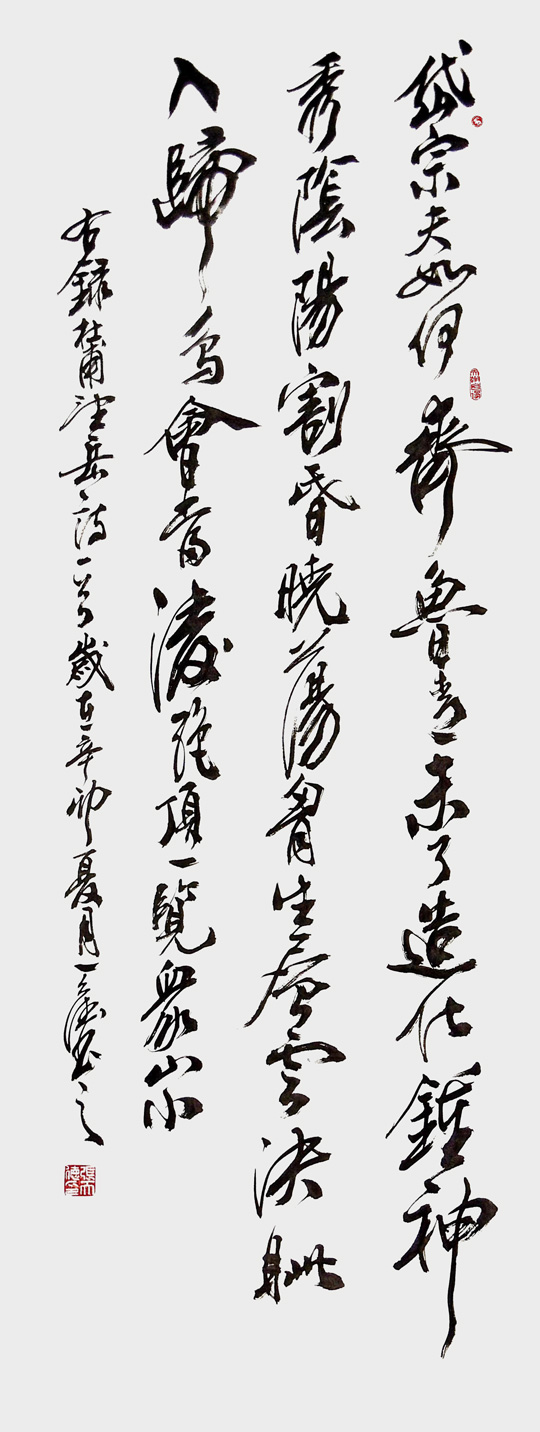 岱宗夫如何齊魯青未了造化鍾神
秀陰陽割昏曉蕩胷生層雲決眥
入歸鳥會當凌絕頂一覽眾山小
右錄杜甫望岳詩一首歲在辛卯夏月